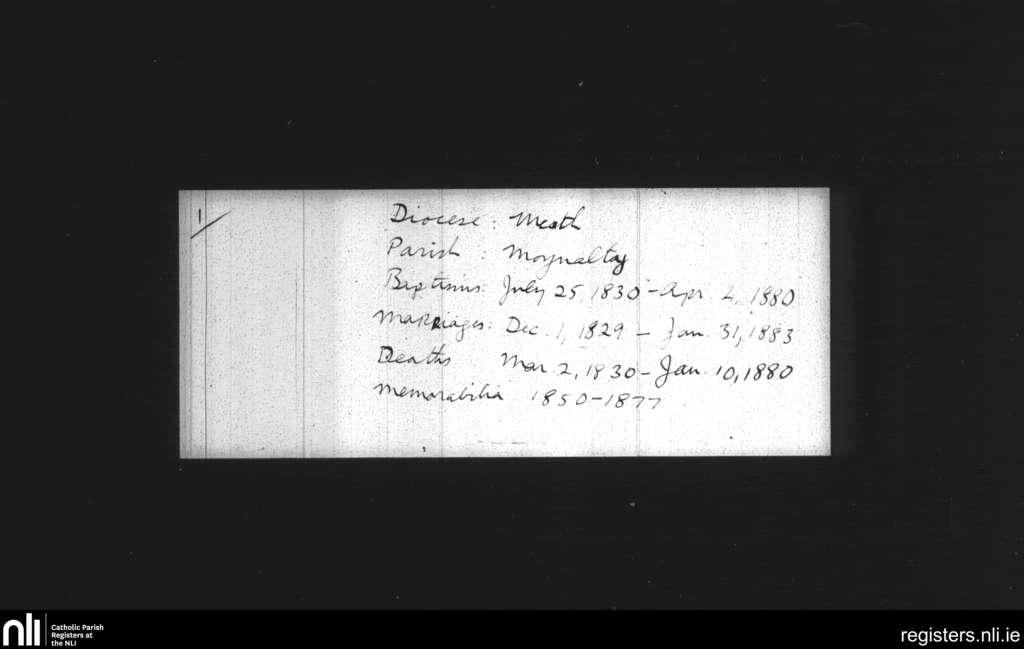 1/
Diocese : Meath
Parish : Moynalty
Baptisms: July 25, 1830 - Apr 4, 1880
Marriages: Dec. 1, 1829 - Jan. 31, 1883
Deaths Mar. 2, 1830 - Jan. 10, 1880
Memorabilia 1850-1877
nli
Catholic Parish
Registers at
the NLI
registers.nli.ie